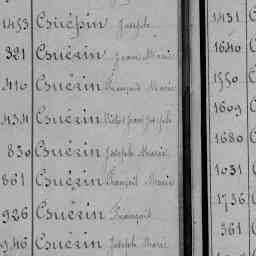 1453 Guérin Joseph
321 Guérin Jean Marie
410 Guérin François Marie
434 Guérin Victor Jean Joseph
830 Guérin Joseph Marie
861 Guérin François Marie
926 Guérin François
946 Guérin Joseph Marie
1431
1640
1550
1609
1680
1031
1736
361